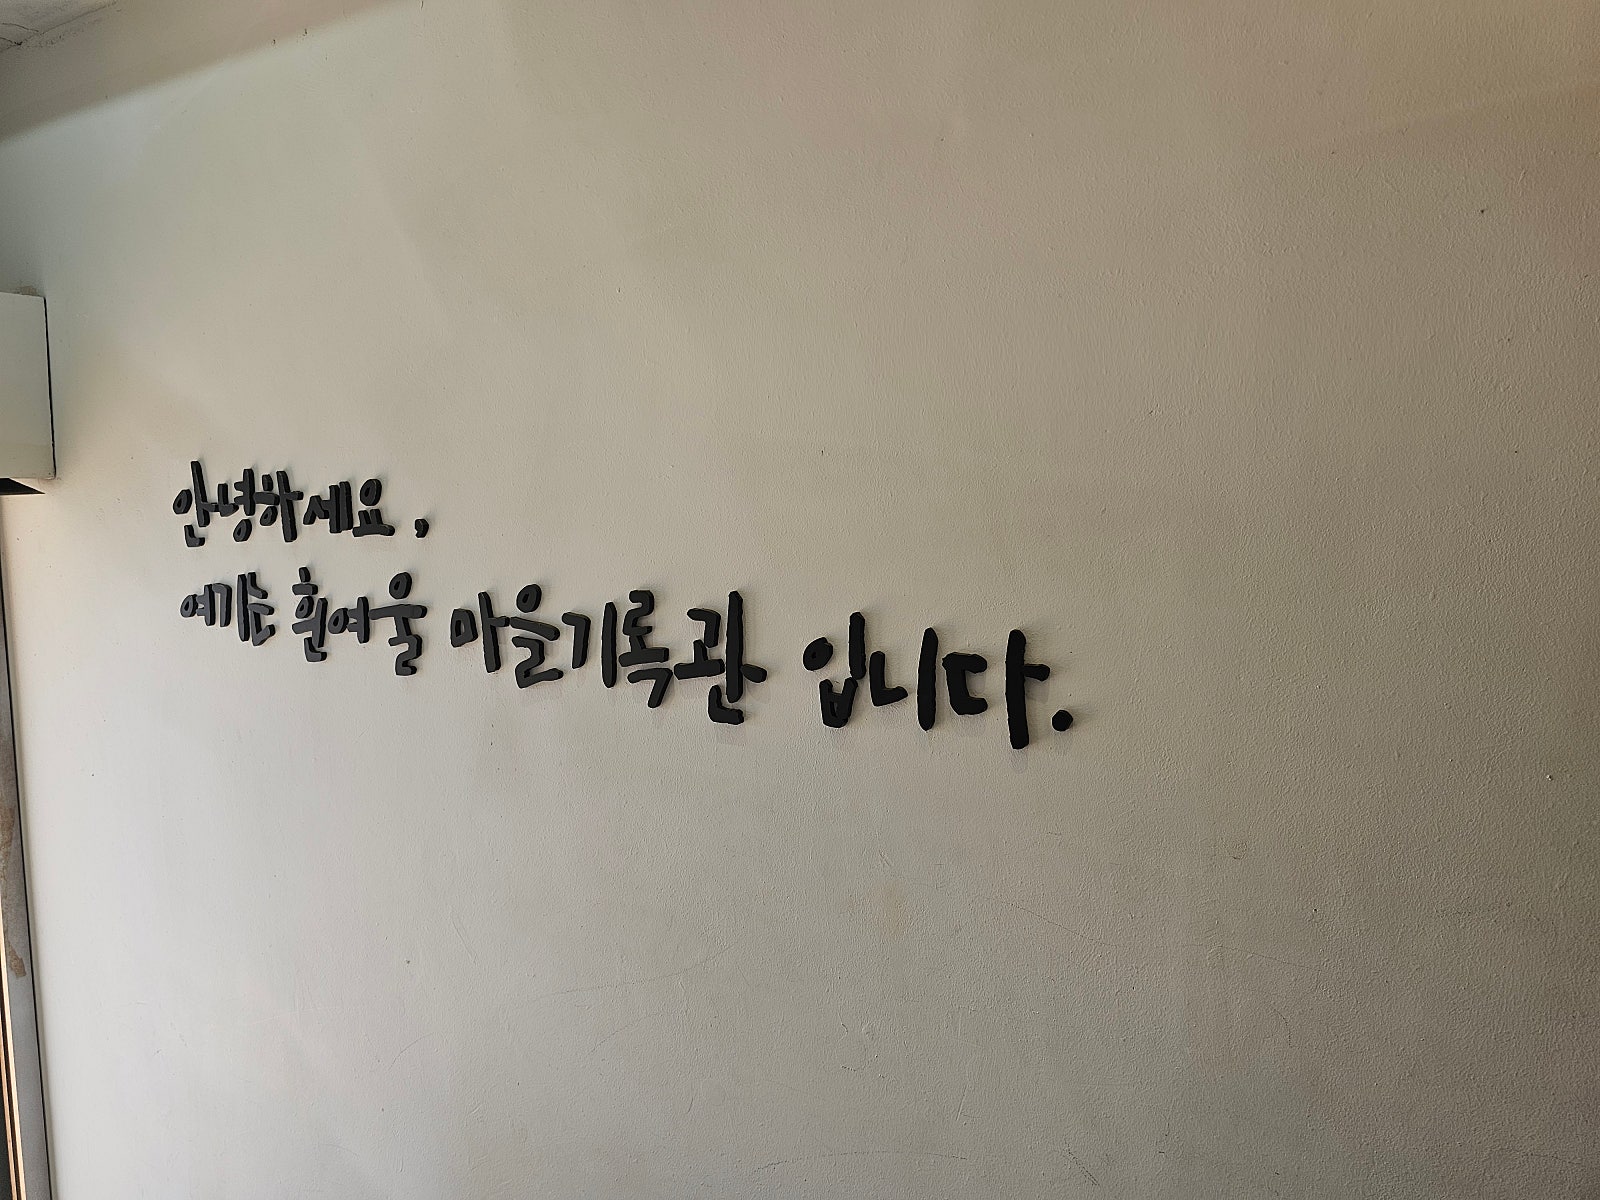 안녕하세요,
여기는 흰여울 마을기록관 입니다.